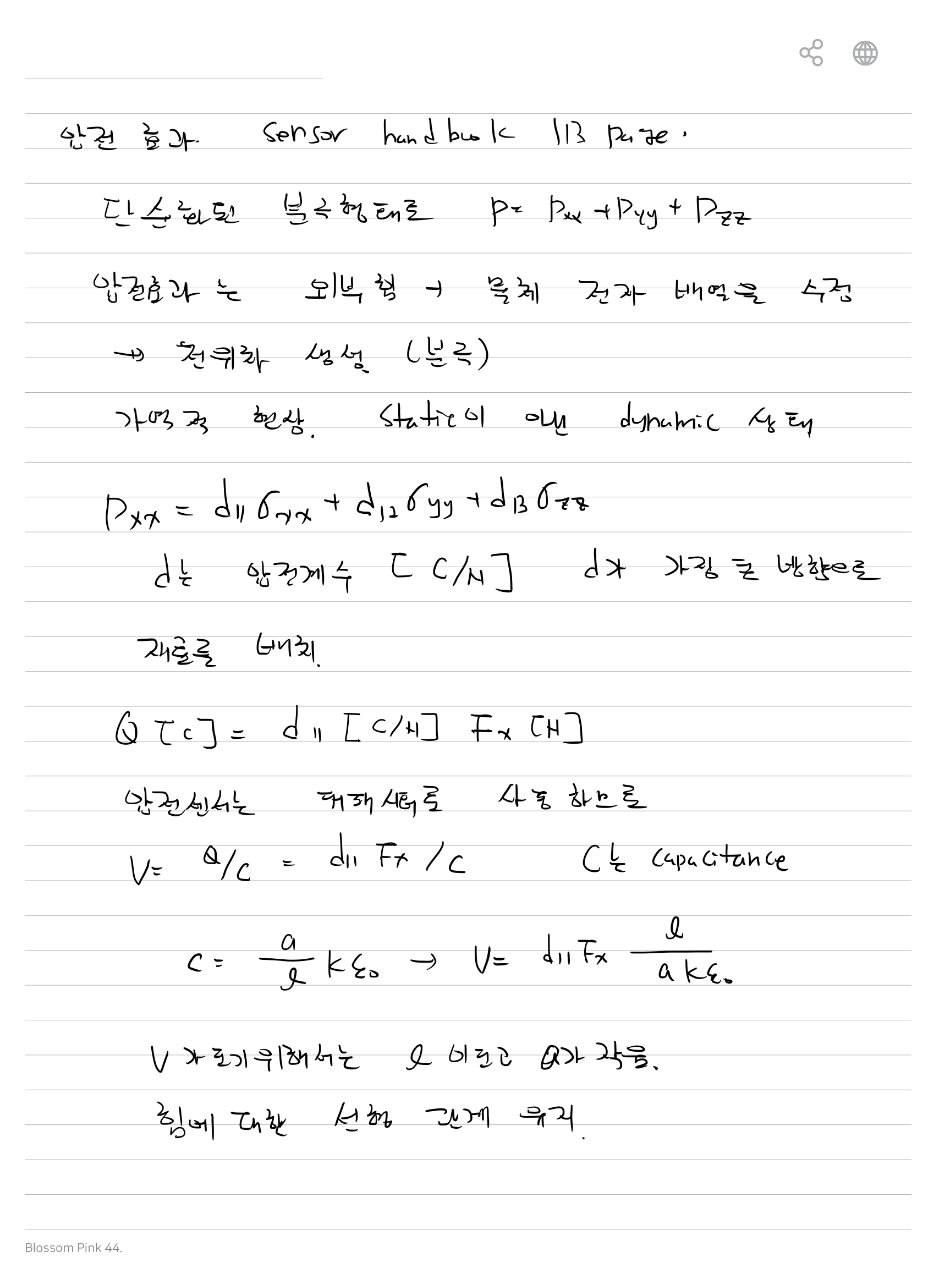 압전 효과. Sensor handbook 113 page.
단순화된 분극형태로 P= Pxx + Pyy + Pzz
압전효과는 외부 힘 → 물체 전자 배열을 수정
→ 전위차 생성 (분극)
가역적 현상. static이 아닌 dynamic 상태
Pxx = d11 σxx + d12 σyy + d13 σzz
d는 압전계수 [C/N] d가 가장 큰 방향으로
재료를 배치.
Q [C] = d11 [C/N] Fx [N]
압전센서는 커패시터로 사용하므로
V= Q/C = d11 Fx /C C는 capacitance
C = a/l kε₀ → V= d11 Fx l/(a kε₀)
V가 크기위해서는 l이 크고 a가 작음.
힘에 대한 선형 관계 유지.
Blossom Pink 44.